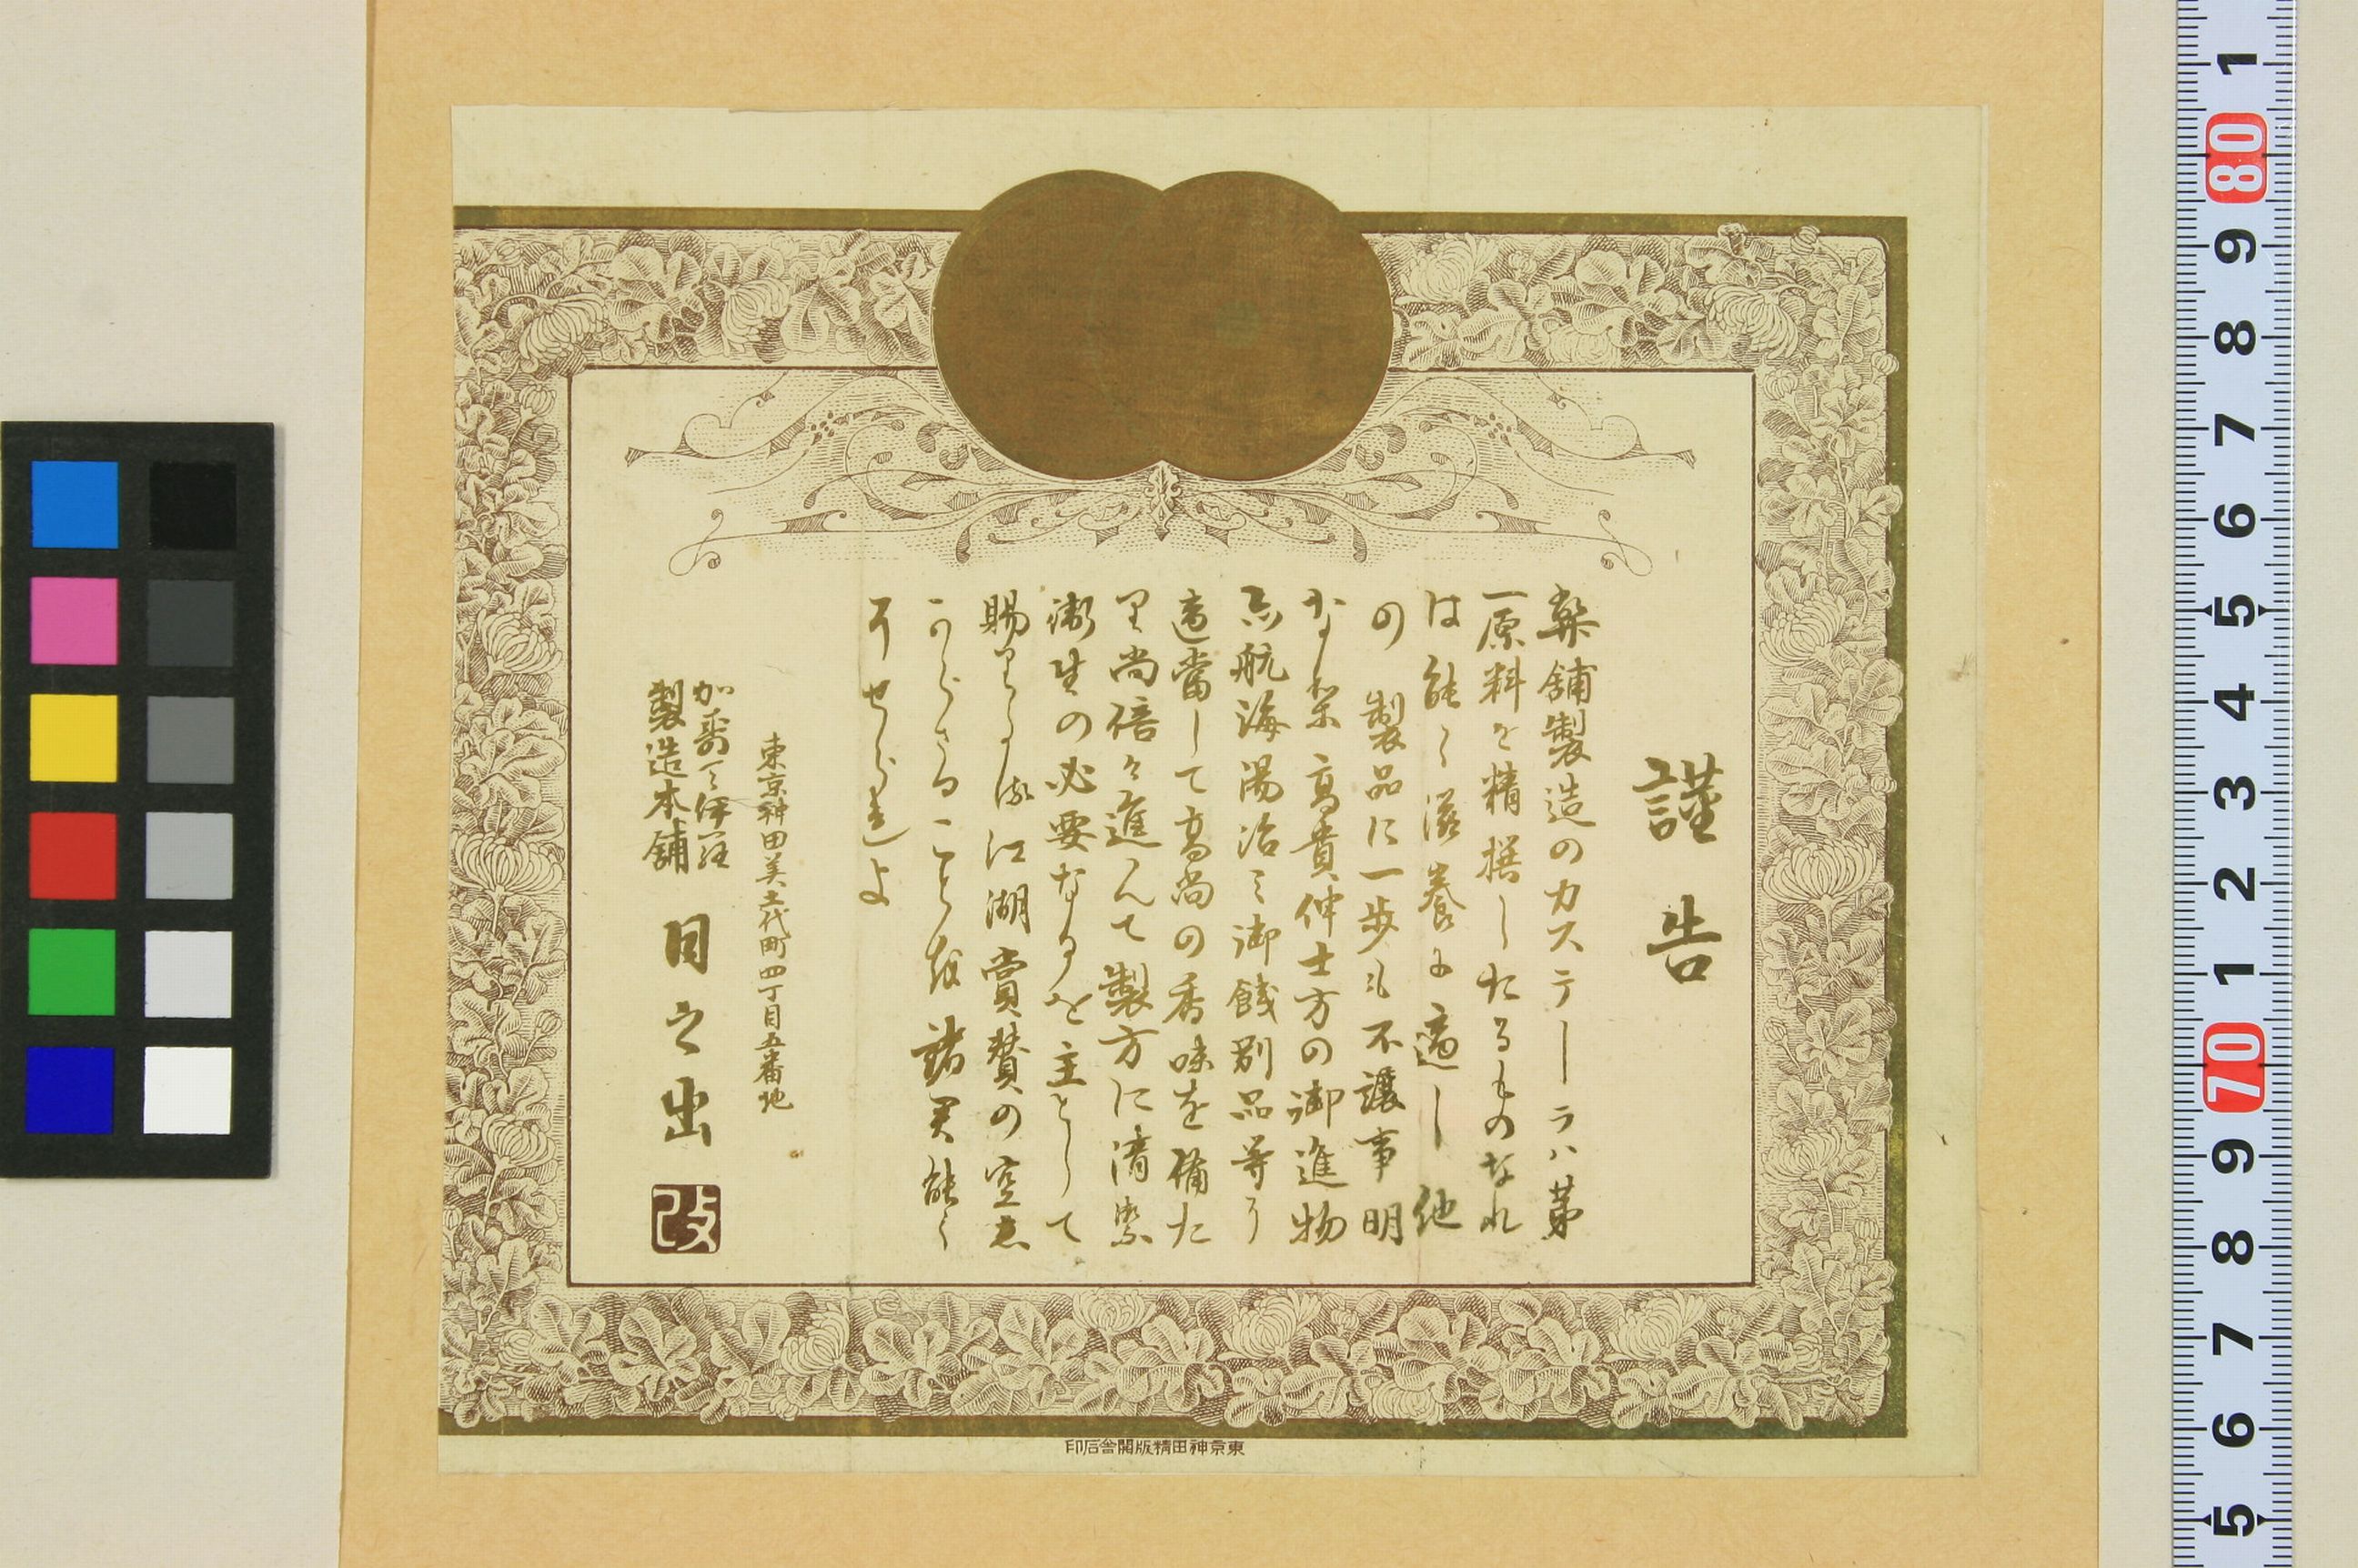 謹告
弊舗製造のカステーラハ第
一原料を精撰したるものなれ
は能く滋養に適し他
の製品に一歩も不譲事明
なれは高貴伸士方の御進物
航海湯治之御餞別品等
適當して高尚の香味を備た
り尚倍々進んて製方に清潔
衛生の必要なるを主として
江湖賞賛の空
からさることを諸君能く
せられよ
東京神田美土代町四丁目五番地
製造本舗
日之出
改
東京神田精版開舎石印
1
80
9
8
7
6
5
4
3
2
1
70
9
8
7
6
5